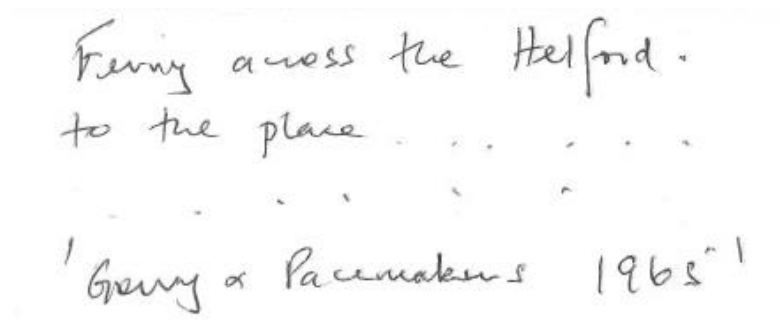 Ferry across the Helford.
to the place . . . . . .
. . . . . .
'Gerry & Pacemakers 1965'